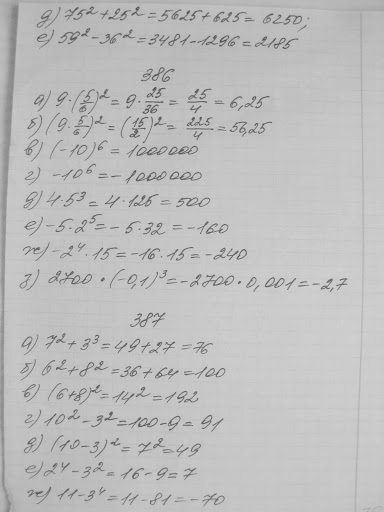 д) 75² + 25² = 5625 + 625 = 6250;
е) 59² - 36² = 3481 - 1296 = 2185
386
а) 9 · (5/6)² = 9 · 25/36 = 25/4 = 6,25
б) (9 · 5/6)² = (15/2)² = 225/4 = 56,25
в) (-10)⁶ = 1000000
г) -10⁶ = -1000000
д) 4 · 5³ = 4 · 125 = 500
е) -5 · 2⁵ = -5 · 32 = -160
ж) -2⁴ · 15 = -16 · 15 = -240
з) 2700 · (-0,1)³ = -2700 · 0,001 = -2,7
387
а) 7² + 3³ = 49 + 27 = 76
б) 6² + 8² = 36 + 64 = 100
в) (6+8)² = 14² = 192
г) 10² - 3² = 100 - 9 = 91
д) (10-3)² = 7² = 49
е) 2⁴ - 3² = 16 - 9 = 7
ж) 11 - 3⁴ = 11 - 81 = -70